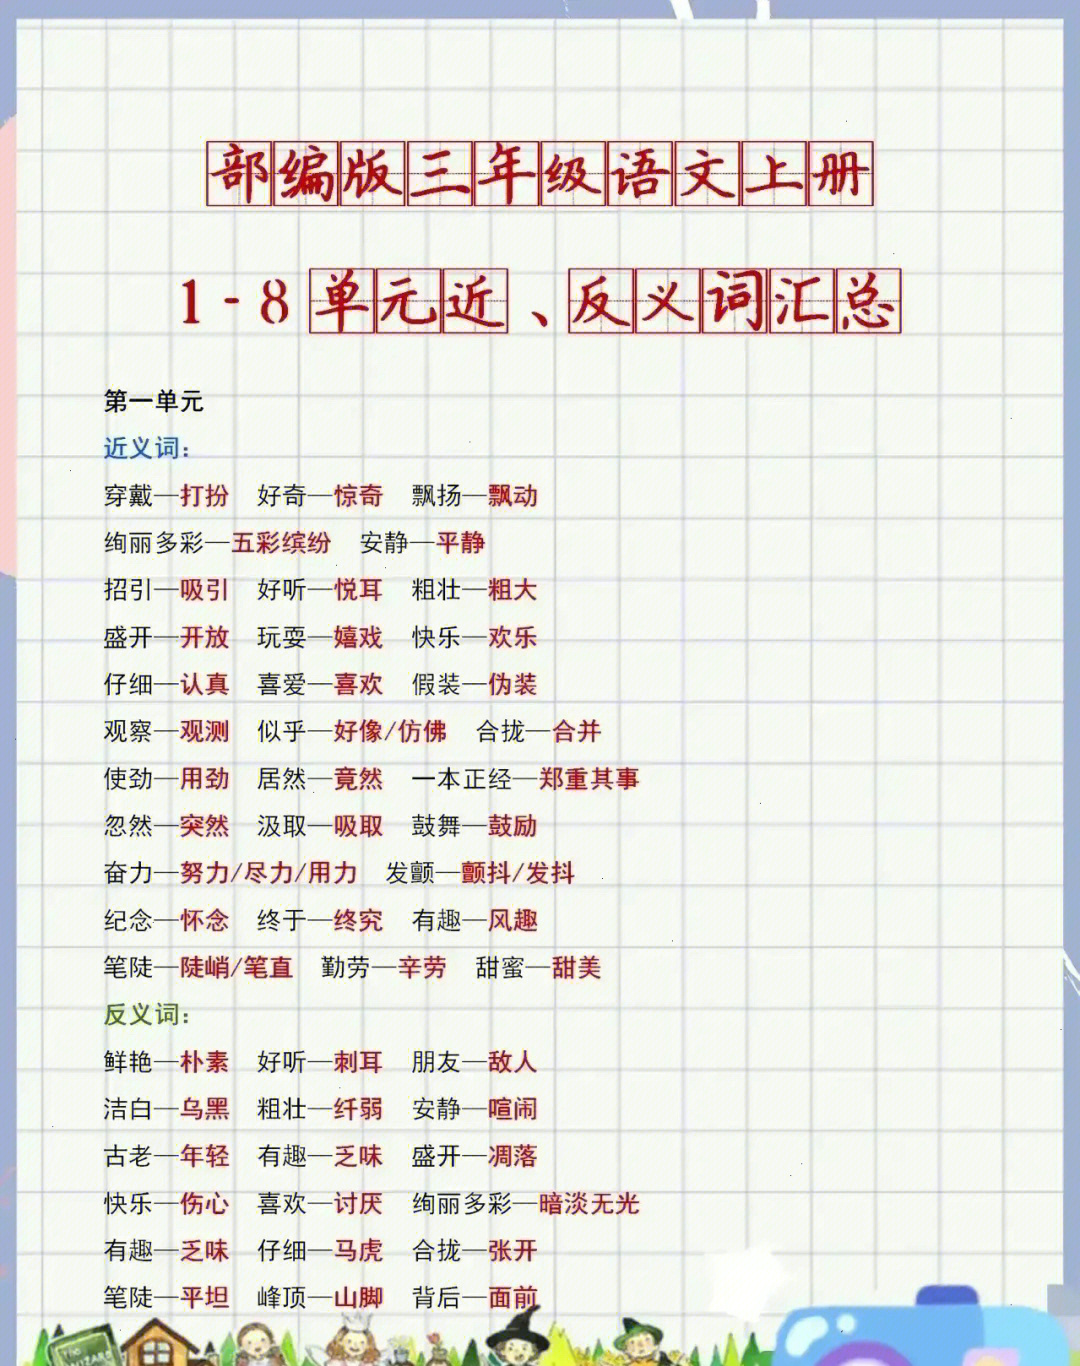 部编版三年级语文上册
1-8单元近、反义词汇总
第一单元
近义词:
穿戴—打扮 好奇—惊奇 飘扬—飘动
绚丽多彩—五彩缤纷 安静—平静
招引—吸引 好听—悦耳 粗壮—粗大
盛开—开放 玩耍—嬉戏 快乐—欢乐
仔细—认真 喜爱—喜欢 假装—伪装
观察—观测 似乎—好像/仿佛 合拢—合并
使劲—用劲 居然—竟然 一本正经—郑重其事
忽然—突然 汲取—吸取 鼓舞—鼓励
奋力—努力/尽力/用力 发颤—颤抖/发抖
纪念—怀念 终于—终究 有趣—风趣
笔陡—陡峭/笔直 勤劳—辛劳 甜蜜—甜美
反义词:
鲜艳—朴素 好听—刺耳 朋友—敌人
洁白—乌黑 粗壮—纤弱 安静—喧闹
古老—年轻 有趣—乏味 盛开—凋落
快乐—伤心 喜欢—讨厌 绚丽多彩—暗淡无光
有趣—乏味 仔细—马虎 合拢—张开
笔陡—平坦 峰顶—山脚 背后—面前
The
WIZARD